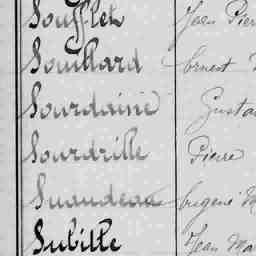 Soufflet Jean Pier
Souillard Ernest
Sourdainie Gusta
Sourdrille Pierre
Suaudeau Eugène M
Subille Jean Mar